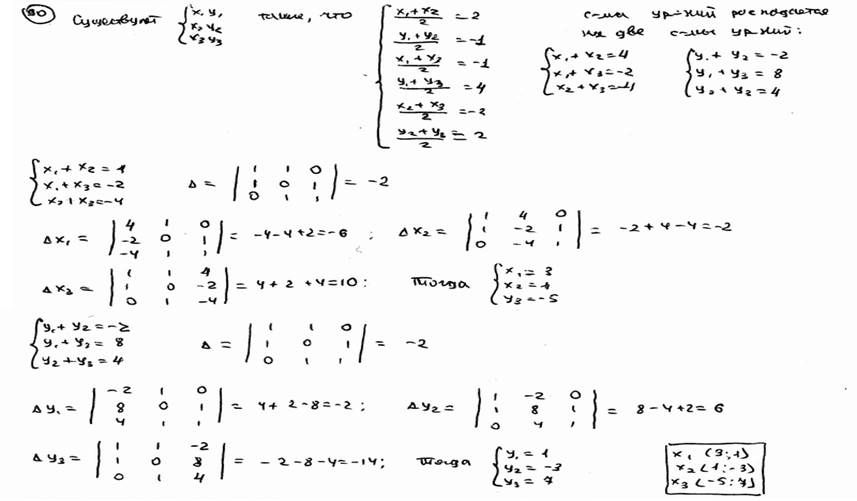 80 Существуют { x1 y1 x2 y2 x3 y3 такие, что
(x1+x2)/2 = 2
(y1+y2)/2 = -1
(x1+x3)/2 = -1
(y1+y3)/2 = 4
(x2+x3)/2 = -2
(y2+y3)/2 = 2
на две с-мы ур-ний:
{ x1+x2=4 { y1+y2=-2
x1+x3=-2 y1+y3=8
x2+x3=-4 y2+y3=4
{ x1+x2=4
x1+x3=-2
x2+x3=-4
Δ = | 1 1 0
1 0 1
0 1 1 | = -2
Δx1 = | 4 1 0
-2 0 1
-4 1 1 | = -4-4+2=-6;
Δx2 = | 1 4 0
1 -2 1
0 -4 1 | = -2+4-4=-2
Δx3 = | 1 1 4
1 0 -2
0 1 -4 | = 4+2+4=10:
Тогда { x1=3
x2=1
y3=-5
{ y1+y2=-2
y1+y3=8
y2+y3=4
Δ = | 1 1 0
1 0 1
0 1 1 | = -2
Δy1 = | -2 1 0
8 0 1
4 1 1 | = 4+2-8=-2;
Δy2 = | 1 -2 0
1 8 1
0 4 1 | = 8-4+2=6
Δy3 = | 1 1 -2
1 0 8
0 1 4 | = -2-8-4=-14;
Тогда { y1=1
y2=-3
y3=7
x1 (3;1)
x2 (1;-3)
x3 (-5;7)